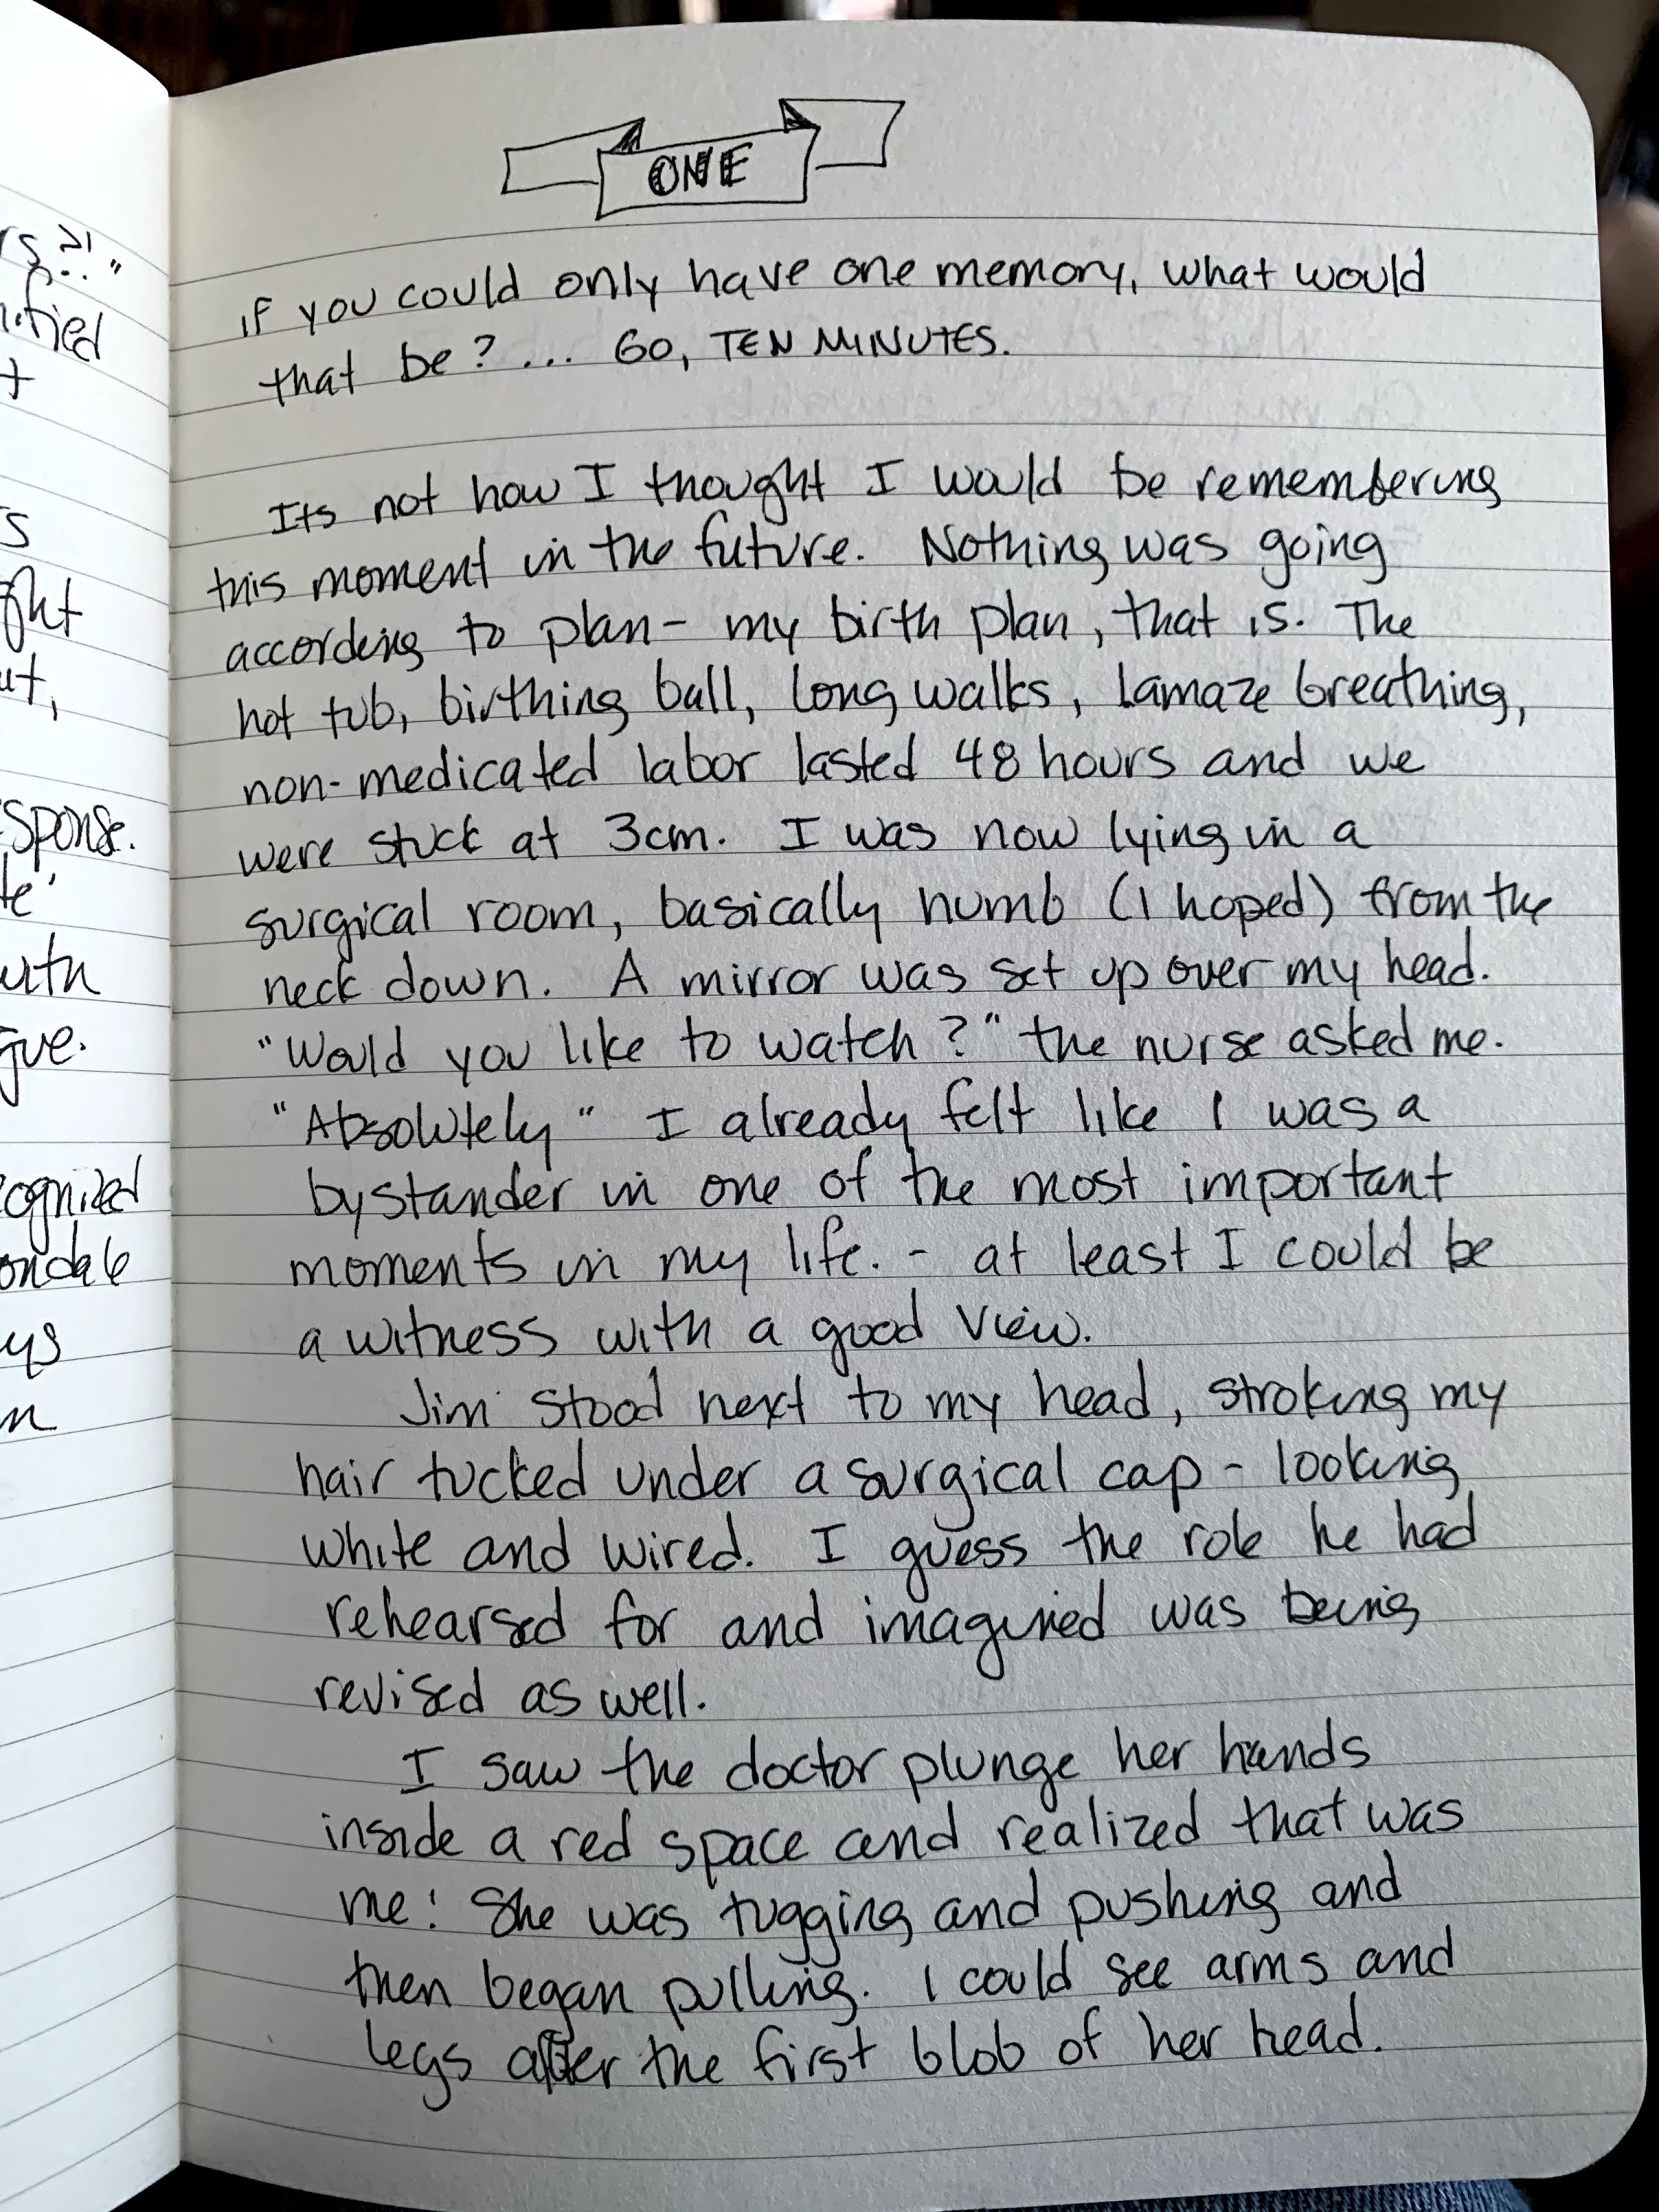 rs?!"
ified
t
s
ght
ut,
sponse.
te'
with
gue.
cognized
ys
m
ONE
if you could only have one memory, what would
that be? ... GO, TEN MINUTES.
Its not how I thought I would be remembering
this moment in the future. Nothing was going
according to plan- my birth plan, that is. The
hot tub, birthing ball, long walks, lamaze breathing,
non-medicated labor lasted 48 hours and we
were stuck at 3cm. I was now lying in a
surgical room, basically numb (I hoped) from the
neck down. A mirror was set up over my head.
"Would you like to watch?" the nurse asked me.
"Absolutely" I already felt like I was a
bystander in one of the most important
moments in my life. - at least I could be
a witness with a good view.
Jim stood next to my head, stroking my
hair tucked under a surgical cap - looking
white and wired. I guess the role he had
rehearsed for and imagined was being
revised as well.
I saw the doctor plunge her hands
inside a red space and realized that was
me! She was tugging and pushing and
then began pulling. I could see arms and
legs after the first blob of her head.